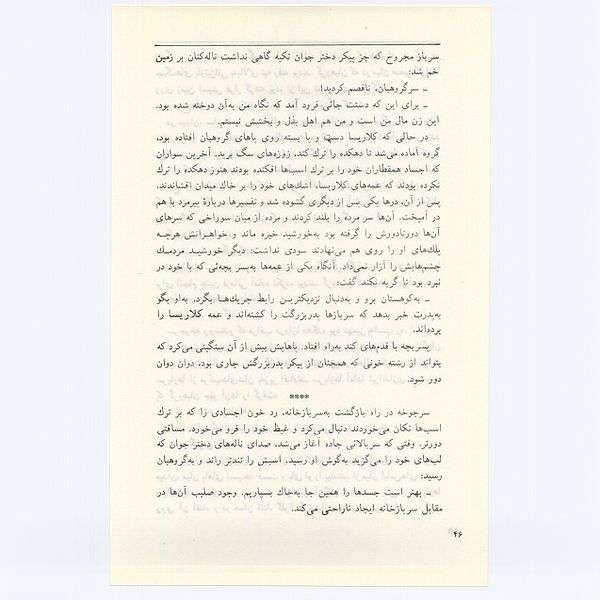 سرباز مجروح که جز پیکر دختر جوان تکیه گاهی نداشت ناله‌کنان بر زمین
خم شد:
ــ سرگروهبان، ناقصم کردید!
ــ برای این که دستت جائی فرود آمد که نگاه من به‌آن دوخته شده بود.
این زن مال من است و من هم اهل بذل و بخشش نیستم.
در حالی که کلاریسا دست و پا بسته روی پاهای گروهبان افتاده بود،
گروه آماده می‌شد تا دهکده را ترك کند. زوزه‌های سگ برید. آخرین سواران
که اجساد همقطاران خود را بر ترك اسب‌ها افکنده بودند هنوز دهکده را ترك
نکرده بودند که عمه‌های کلاریسا، اشك‌های خود را بر خاك میدان افشاندند.
پس از آن، درها یکی پس از دیگری گشوده شد و تفسیرها دربارهٔ پیرمرد با هم
در آمیخت. آن‌ها سر مرده را بلند کردند و مرده از میان سوراخی که سرهای
آن‌ها دورتادورش را گرفته بود به‌خورشید خیره ماند و خواهرانش هرچه
پلك‌های او را روی هم می‌نهادند سودی نداشت: دیگر خورشید مردمك
چشم‌هایش را آزار نمی‌داد. آنگاه یکی از عمه‌ها به‌پسر بچه‌ئی که با خود در
نبرد بود تا گریه نکند گفت:
ــ به‌کوهستان برو و به‌دنبال نزدیکترین رابط چریك‌ها بگرد. به‌او بگو
به‌پدرت خبر بدهد که سربازها پدربزرگت را کشته‌اند و عمه کلاریسا را
برده‌اند.
پسربچه با قدم‌های کند به‌راه افتاد. پاهایش بیش از آن سنگینی می‌کرد که
بتواند از رشته خونی که همچنان از پیکر پدربزرگش جاری بود، دوان دوان
دور شود.
****
سرجوخه در راه بازگشت به‌سربازخانه، رد خون اجسادی را که بر ترك
اسب‌ها تکان می‌خوردند دنبال می‌کرد و غیظ خود را فرو می‌خورد. مسافتی
دورتر، وقتی که سربالائی جاده آغاز می‌شد، صدای ناله‌های دختر جوان که
لب‌های خود را می‌گزید به‌گوش او رسید. اسبش را تندتر راند و به‌گروهبان
رسید:
ــ بهتر است جسدها را همین جا به‌خاك بسپاریم. وجود صلیب آن‌ها در
مقابل سربازخانه ایجاد ناراحتی می‌کند.
۴۶